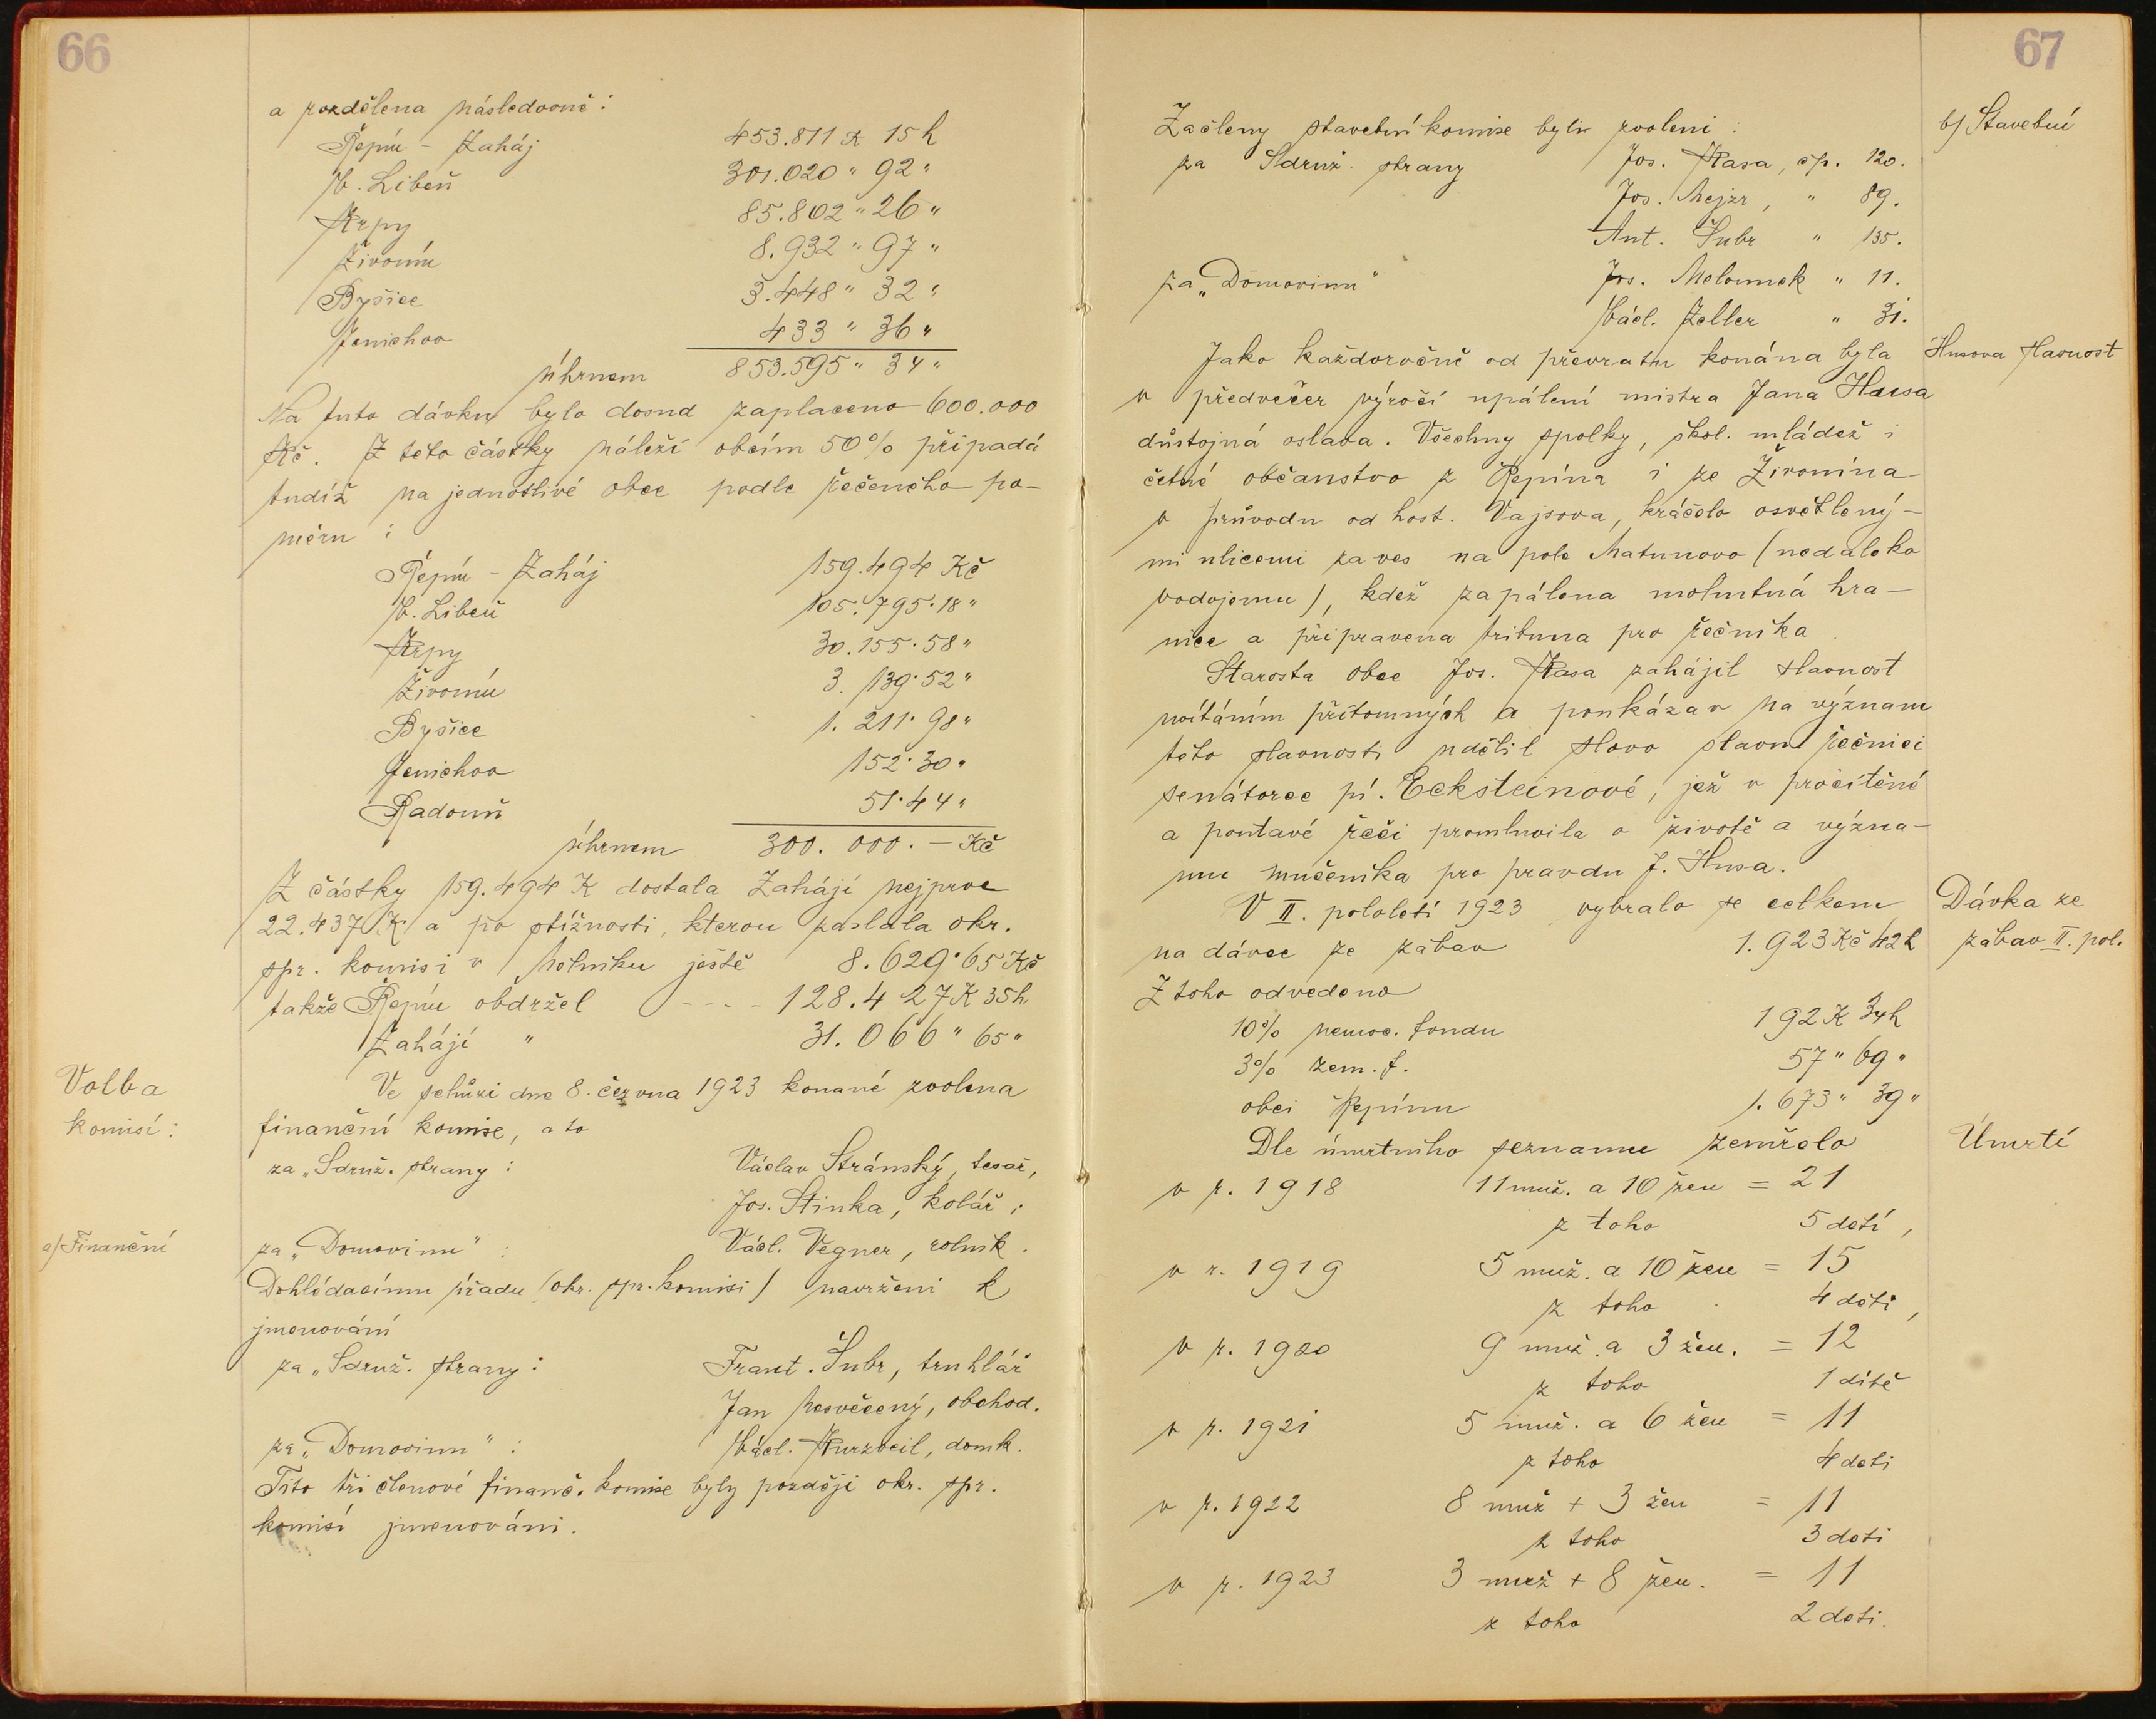 66
a rozdělena následovně:
Řepín - Zaháj 453.811 K 15 h
V. Libeň 301.020 " 92 "
Krpy 85.802 " 26 "
Živonín 8.932 " 97 "
Byšice 3.448 " 32 "
Jenichov 433 " 36 "
úhrnem 853.595 " 34 "
Na tuto dávku bylo dosud zaplaceno 600.000
Kč. Z této částky náleží obcím 50% připadá
tudíž na jednotlivé obce podle řečeného po-
měru :
Řepín - Zaháj 159.494 Kč
V. Libeň 105.795.18 "
Krpy 30.155.58 "
Živonín 3.139.52 "
Byšice 1.211.98 "
Jenichov 152.30 "
Radouň 51.44 "
úhrnem 300.000.- Kč
Z částky 159.494 K dostala Zahájí nejprve
22.437 K a po stížnosti, kterou zaslala okr.
spr. komisi v Mělníku ještě 8.629.65 Kč
takže Řepín obdržel ---- 128.427 K 35 h
Zahájí " 31.066 " 65 "
Volba
komisí:
Ve schůzi dne 8. června 1923 konané zvolena
finanční komise, a to
za „Sdruž. strany : Václav Stránský, tesař,
Jos. Stinka, kolář,
a) Finanční
za „Domovinu" : Václ. Vegner, rolník.
Dohlédacímu úřadu (okr. spr. komisi) navrženi k
jmenování
za „Sdruž. strany : Frant. Šubr, truhlář
Jan Nesvěcený, obchod.
za „Domovinu" : Václ. Kurzveil, domk.
Tito tři členové finanč. komise byly později okr. spr.
komisí jmenováni.
67
Začleny stavební komise byli zvoleni :
b) Stavební
za Sdruž. strany Jos. Kasa, čp. 120.
Jos. Mejzr, " 89.
Ant. Šubr " 135.
za „Domovinu" Jos. Melounek " 11.
Václ. Zeller " 31.
Jako každoročně od převratu konána byla
Husova slavnost
v předvečer výročí upálení mistra Jana Husa
důstojná oslava. Všechny spolky, škol. mládež i
četné občanstvo z Řepína i ze Živonína
v průvodu od host. Vajsova, kráčelo osvětlený-
mi ulicemi za ves na pole Matunovo (nedaleko
vodojemu), kdež zapálena mohutná hra-
nice a připravena tribuna pro řečníka.
Starosta obce Jos. Kasa zahájil slavnost
uvítáním přítomných a poukázav na význam
této slavnosti udělil slovo slavn. řečnici
senátorce pí. Ecksteinové, jež v procítěné
a poutavé řeči promluvila o životě a význa-
mu mučeníka pro pravdu J. Husa.
V II. pololetí 1923 vybralo se celkem
Dávka ze
zábav II. pol.
na dávce ze zábav 1.923 Kč 42 h
Z toho odvedeno
10% nemoc. fondu 192 K 34 h
3% zem. f. 57 " 69 "
obci Řepínu 1.673 " 39 "
Dle úmrtního seznamu zemřelo
Úmrtí
v r. 1918 11 muž. a 10 žen = 21
z toho 5 dětí,
v r. 1919 5 muž. a 10 žen = 15
z toho 4 děti,
v r. 1920 9 muž. a 3 žen. = 12
z toho 1 dítě
v r. 1921 5 muž. a 6 žen = 11
z toho 4 děti
v r. 1922 8 muž + 3 žen = 11
z toho 3 děti
v r. 1923 3 muž + 8 žen. = 11
z toho 2 děti.